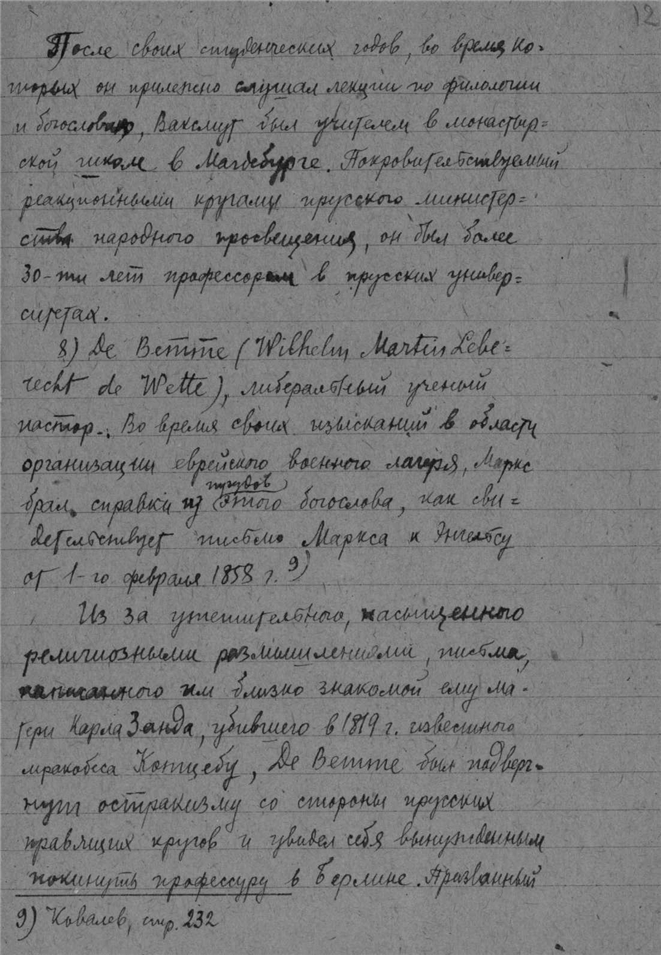 12
После своих студенческих годов, во время ко=
торых он прилежно слушал лекции по филологии
и богословию, Ваксмут был учителем в монастыр=
ской школе в Магдебурге. Покровительствуемый
реакционными кругами прусского министер=
ства народного просвещения, он был более
30-ти лет профессором в прусских универ=
ситетах.
8) Де Ветте (Wilhelm Martin Lebe=
recht de Wette), либеральный ученый
пастор. Во время своих изысканий в области
организации еврейского военного лагеря, Маркс
трудов
брал справки из этого богослова, как сви=
детельствует письмо Маркса к Энгельсу
от 1-го февраля 1858 г. 9)
Из за утешительного, насыщенного
религиозными размышлениями, письма,
написанного им близко знакомой ему ма-
тери Карла Занда, убившего в 1819 г. известного
мракобеса Котцебу, Де Ветте был подверг-
нут остракизму со стороны прусских
правящих кругов и увидел себя вынужденным
покинуть профессуру в Берлине. Призванный
9) Ковалев, стр. 232